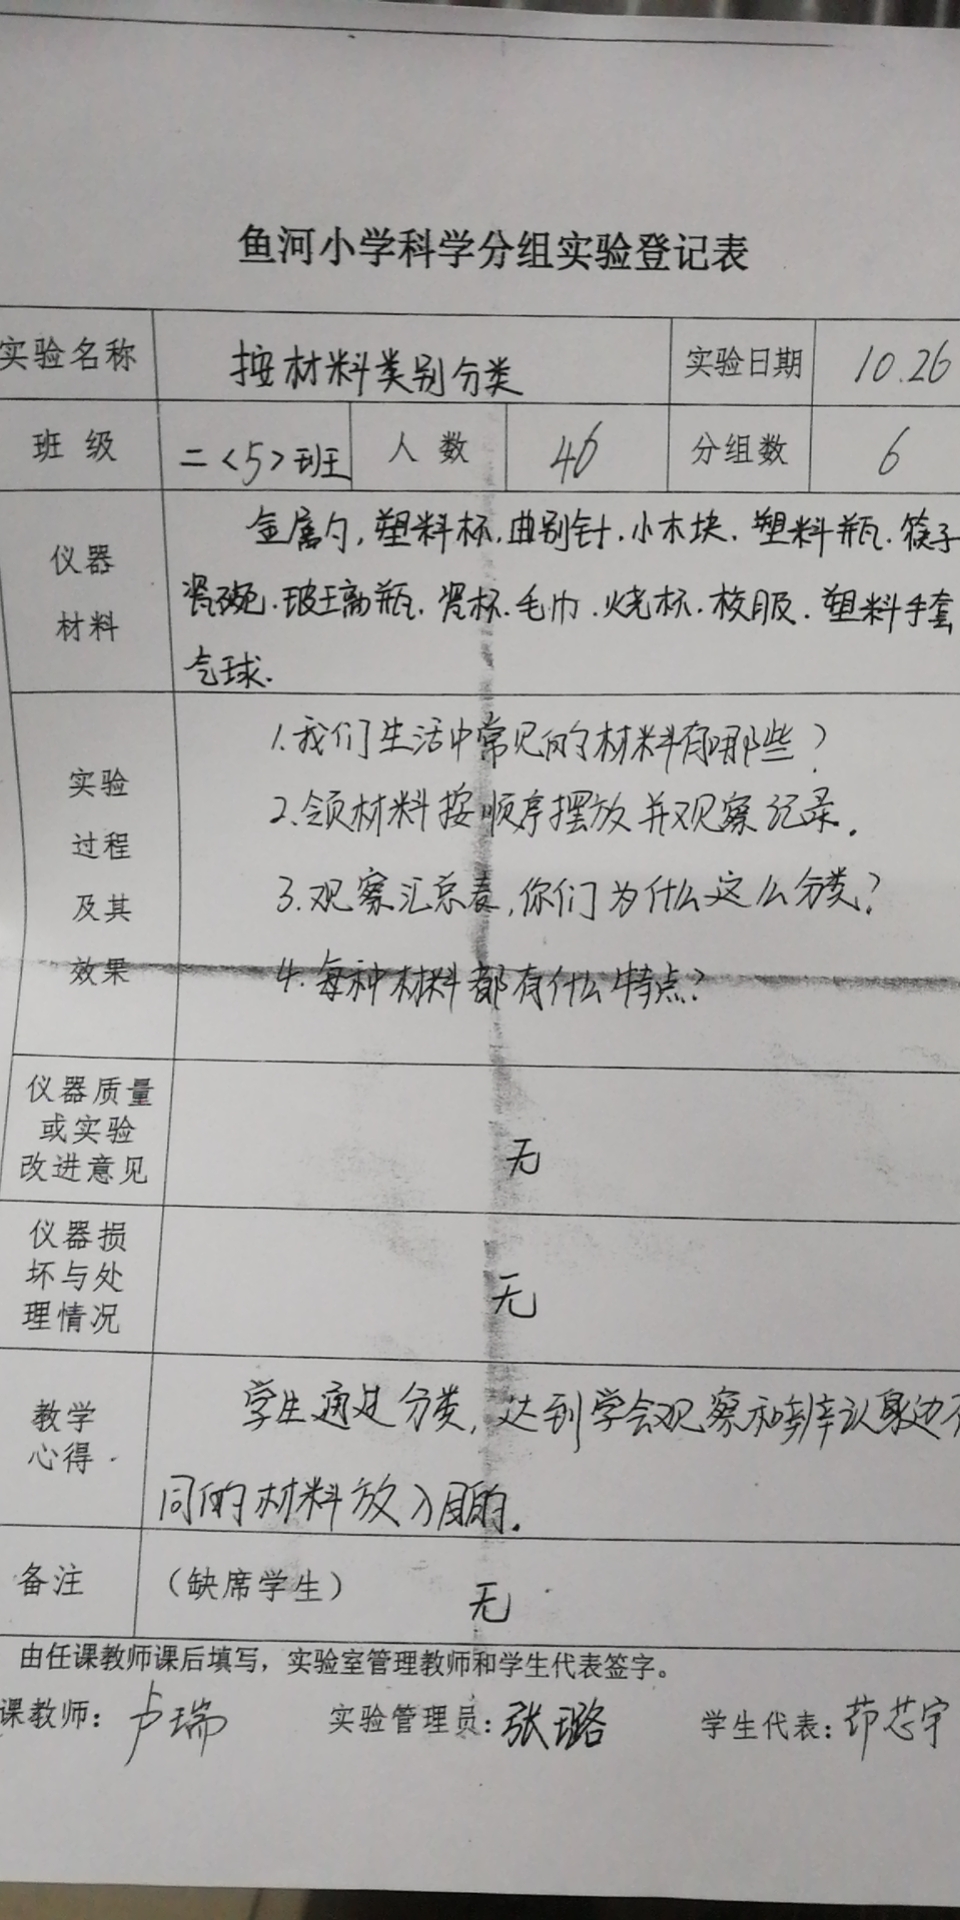 鱼河小学科学分组实验登记表
实验名称 按材料类别分类 实验日期 10.26
班级 二<5>班 人数 46 分组数 6
仪器材料 金属勺,塑料杯,曲别针.小木块.塑料瓶.筷子
瓷碗.玻璃瓶.瓷杯.毛巾.烧杯.校服.塑料手套
气球.
实验过程及其效果 1.我们生活中常见的材料有哪些?
2.领材料按顺序摆放并观察记录.
3.观察汇总表,你们为什么这么分类?
4.每种材料都有什么特点?
仪器质量或实验改进意见 无
仪器损坏与处理情况 无
教学心得. 学生通过分类,达到学会观察和辨认身边不
同的材料放入目的.
备注 (缺席学生) 无
由任课教师课后填写,实验室管理教师和学生代表签字。
课教师: 卢瑞 实验管理员: 张璐 学生代表: 芯宇